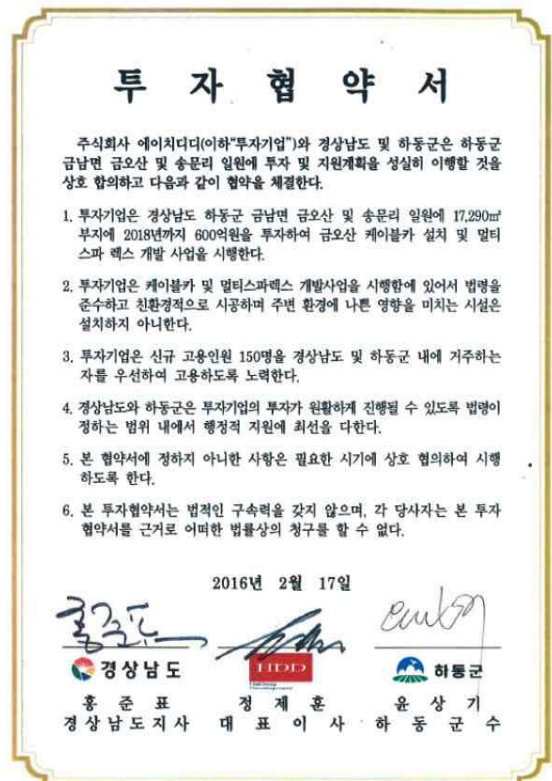 투 자 협 약 서
주식회사 에이치디디(이하"투자기업")와 경상남도 및 하동군은 하동군
금남면 금오산 및 송문리 일원에 투자 및 지원계획을 성실히 이행할 것을
상호 합의하고 다음과 같이 협약을 체결한다.
1. 투자기업은 경상남도 하동군 금남면 금오산 및 송문리 일원에 17,290㎡
부지에 2018년까지 600억원을 투자하여 금오산 케이블카 설치 및 멀티
스파 렉스 개발 사업을 시행한다.
2. 투자기업은 케이블카 및 멀티스파렉스 개발사업을 시행함에 있어서 법령을
준수하고 친환경적으로 시공하며 주변 환경에 나쁜 영향을 미치는 시설은
설치하지 아니한다.
3. 투자기업은 신규 고용인원 150명을 경상남도 및 하동군 내에 거주하는
자를 우선하여 고용하도록 노력한다.
4. 경상남도와 하동군은 투자기업의 투자가 원활하게 진행될 수 있도록 법령이
정하는 범위 내에서 행정적 지원에 최선을 다한다.
5. 본 협약서에 정하지 아니한 사항은 필요한 시기에 상호 협의하여 시행
하도록 한다.
6. 본 투자협약서는 법적인 구속력을 갖지 않으며, 각 당사자는 본 투자
협약서를 근거로 어떠한 법률상의 청구를 할 수 없다.
2016년 2월 17일
홍준표
경상남도 HDD 하동군
홍 준 표 정 재 훈 윤 상 기
경상남도지사 대 표 이 사 하 동 군 수